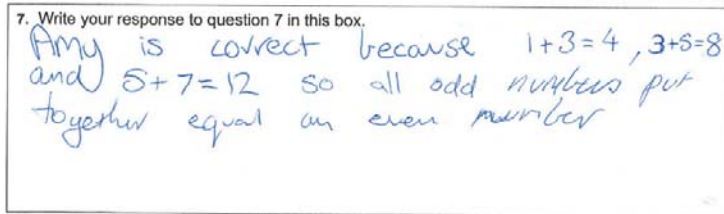 7. Write your response to question 7 in this box.
Amy is correct because 1+3=4, 3+5=8
and 5+7=12 so all odd numbers put
together equal an even number